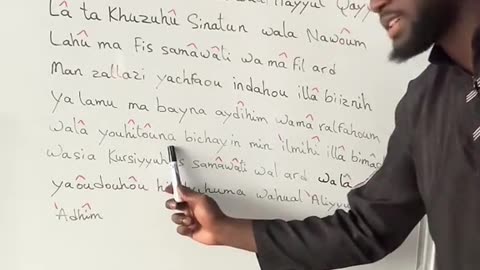 Hayyul Qay
Lâ ta Khuzuhû Sinatun wala Nawôum
Lahû ma Fis samâwâti wa mâ Fil ard
Man zallazi yachfaou indahou illâ biiznih
Ya lamu ma bayna aydîhim wamâ ralfahoum
walâ youhîtôuna bichay in min 'ilmihî illâ bimâ
wasia Kursiyyuh s samâwâti wal ard walâ
yaôudouhôu hi uhuma wahual 'Aliyyu
'Adhîm